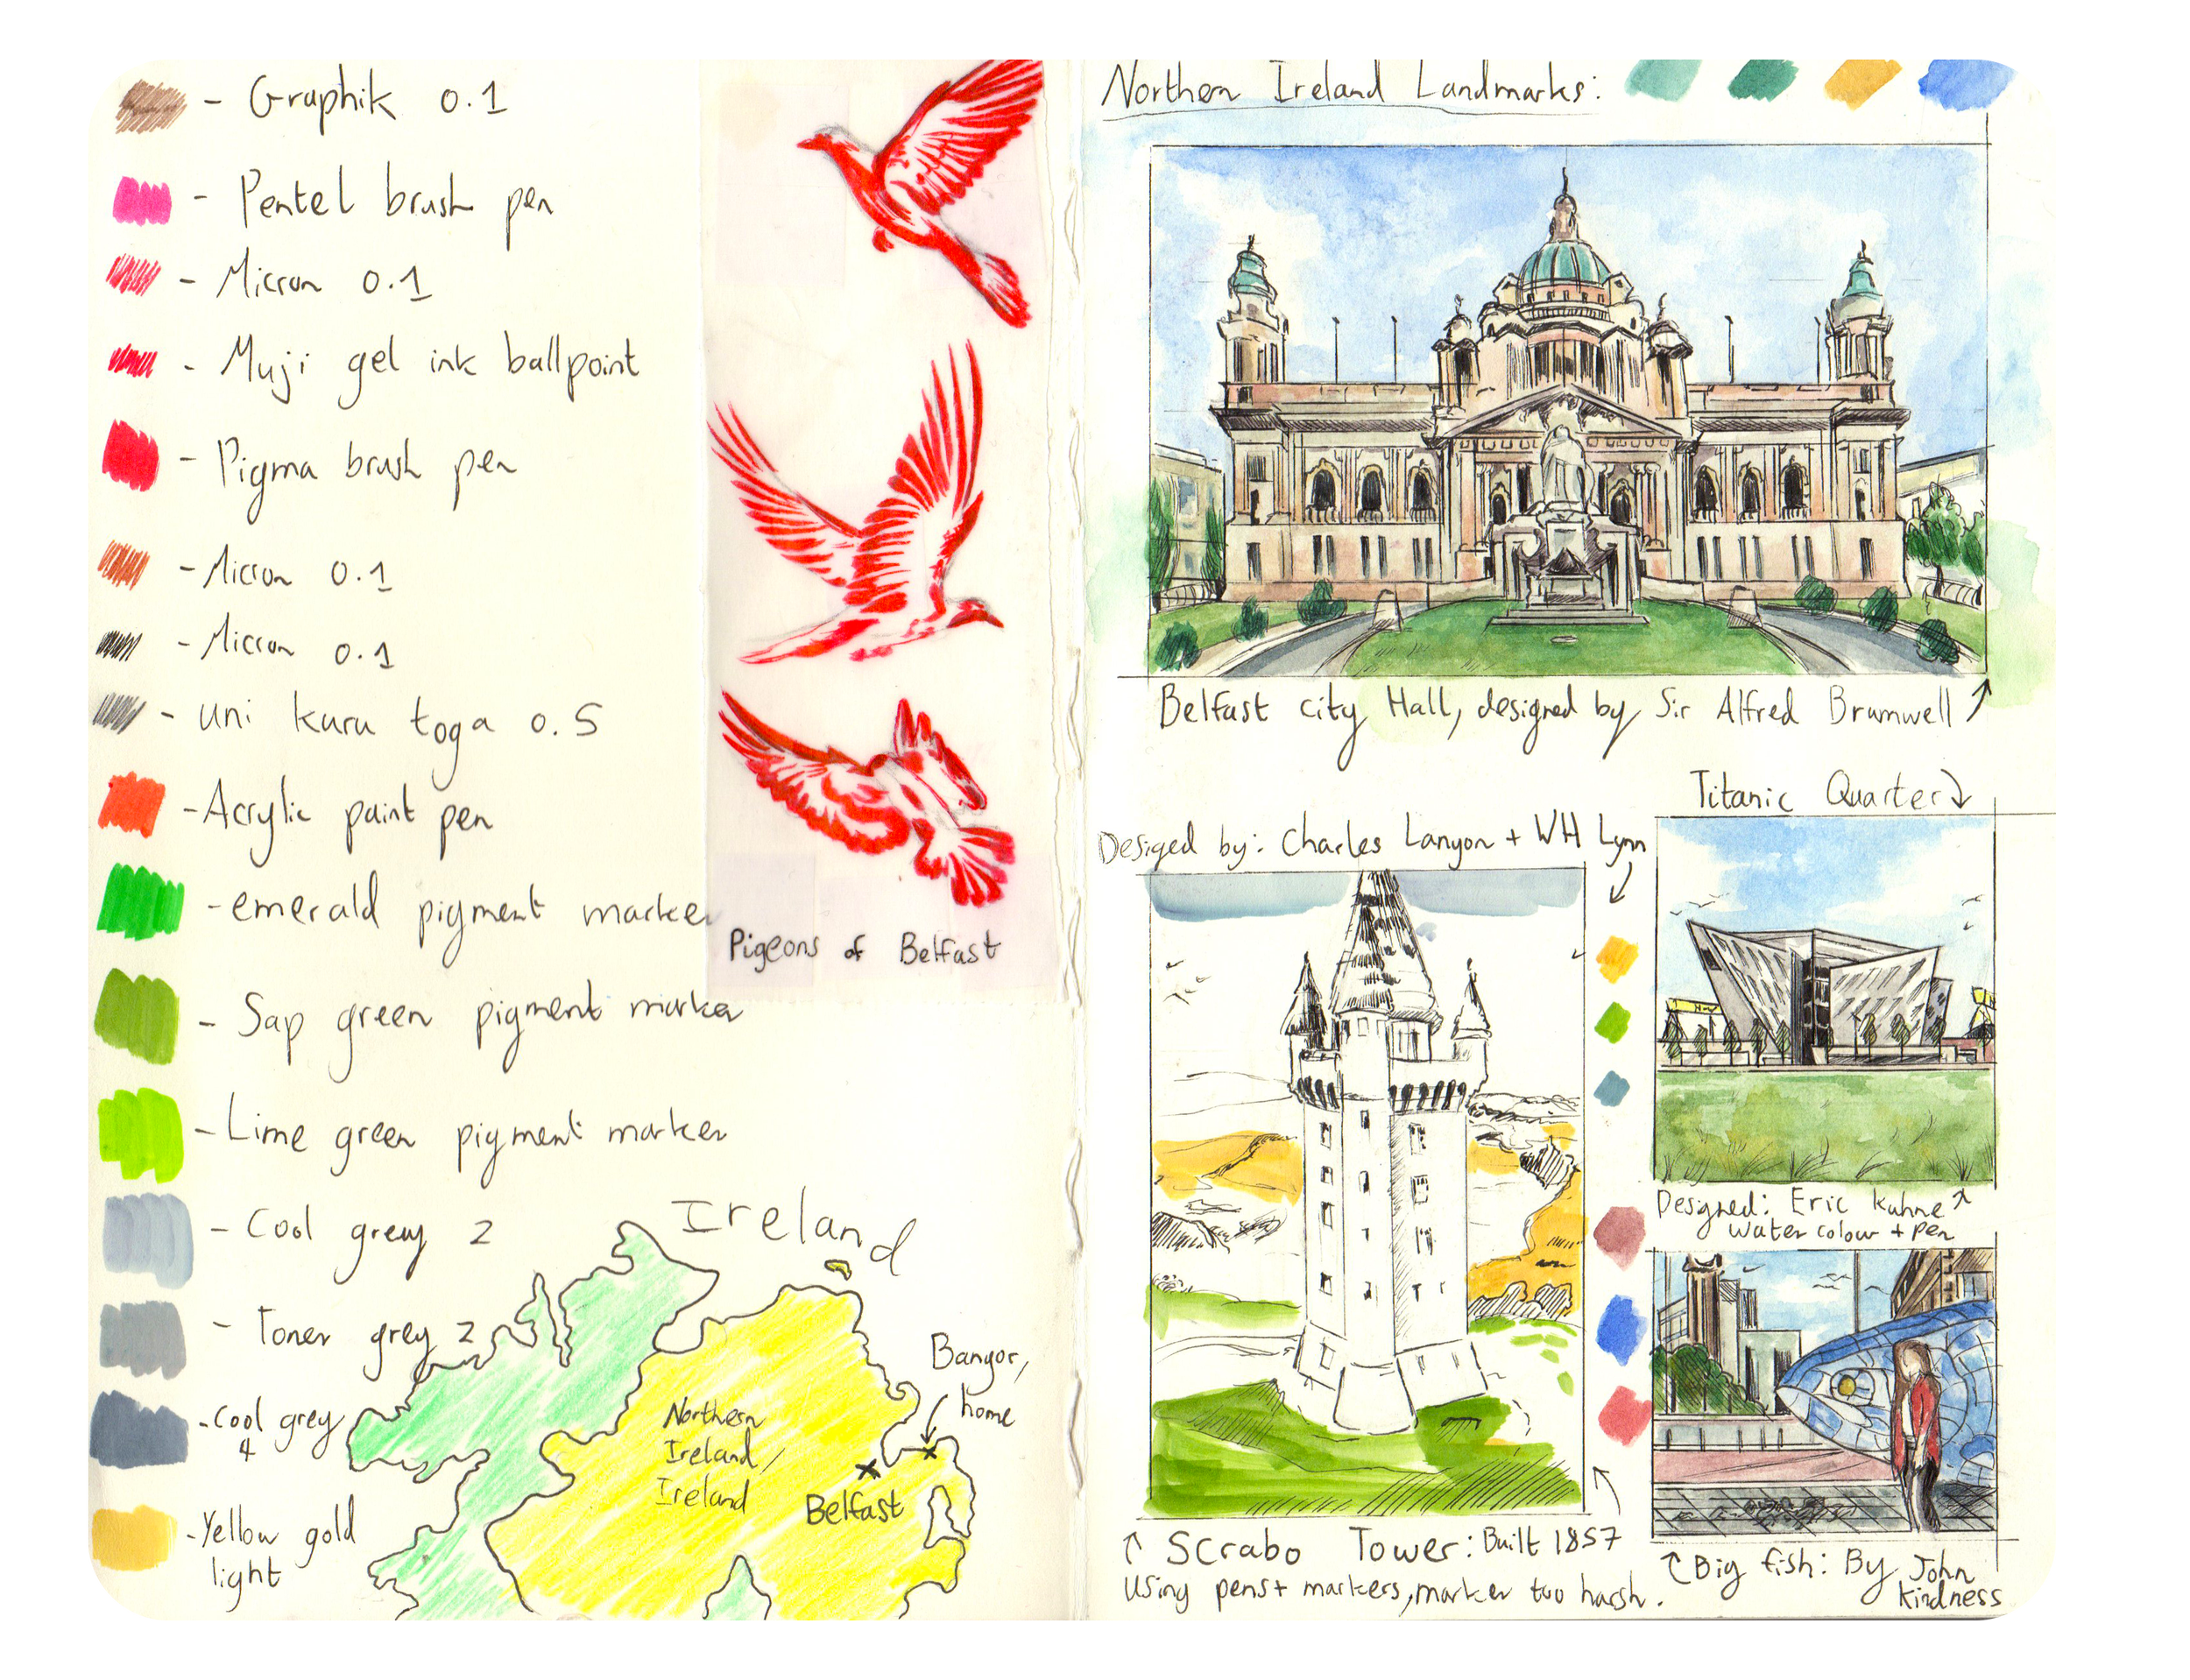 - Graphik 0.1
- Pentel brush pen
- Micron 0.1
- Muji gel ink ballpoint
- Pigma brush pen
- Micron 0.1
- Micron 0.1
- uni kuru toga 0.5
- Acrylic paint pen
- emerald pigment marker
- Sap green pigment marker
- Lime green pigment marker
- Cool grey 2
- Toner grey 2
- Cool grey
4
- Yellow gold
light
Pigeons of Belfast
Ireland
Northern
Ireland/
Ireland
Bangor,
home
Belfast
Northern Ireland Landmarks:
Belfast city Hall, designed by Sir Alfred Brumwell
Titanic Quarter
Desiged by: Charles Lanyon + WH Lynn
Designed: Eric Kuhne
water colour + pen
Scrabo Tower: Built 1857
Using pens + markers, marker too harsh.
Big fish: By John
Kindness